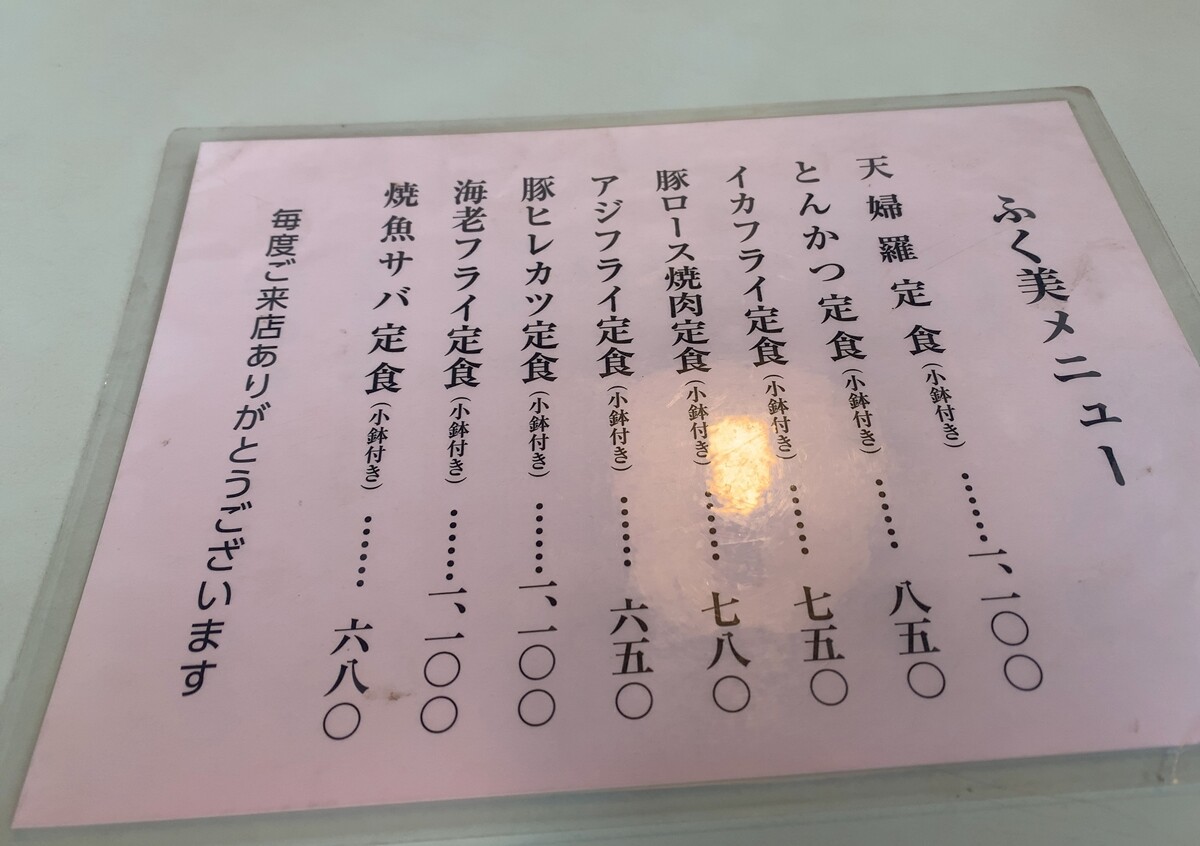 ふく美メニュー
天婦羅定食（小鉢付き）……一、一〇〇
とんかつ定食（小鉢付き）……八五〇
イカフライ定食（小鉢付き）……七五〇
豚ロース焼肉定食（小鉢付き）……七八〇
アジフライ定食（小鉢付き）……六五〇
豚ヒレカツ定食（小鉢付き）……一、一〇〇
海老フライ定食（小鉢付き）……一、一〇〇
焼魚サバ定食（小鉢付き）……六八〇
毎度ご来店ありがとうございます